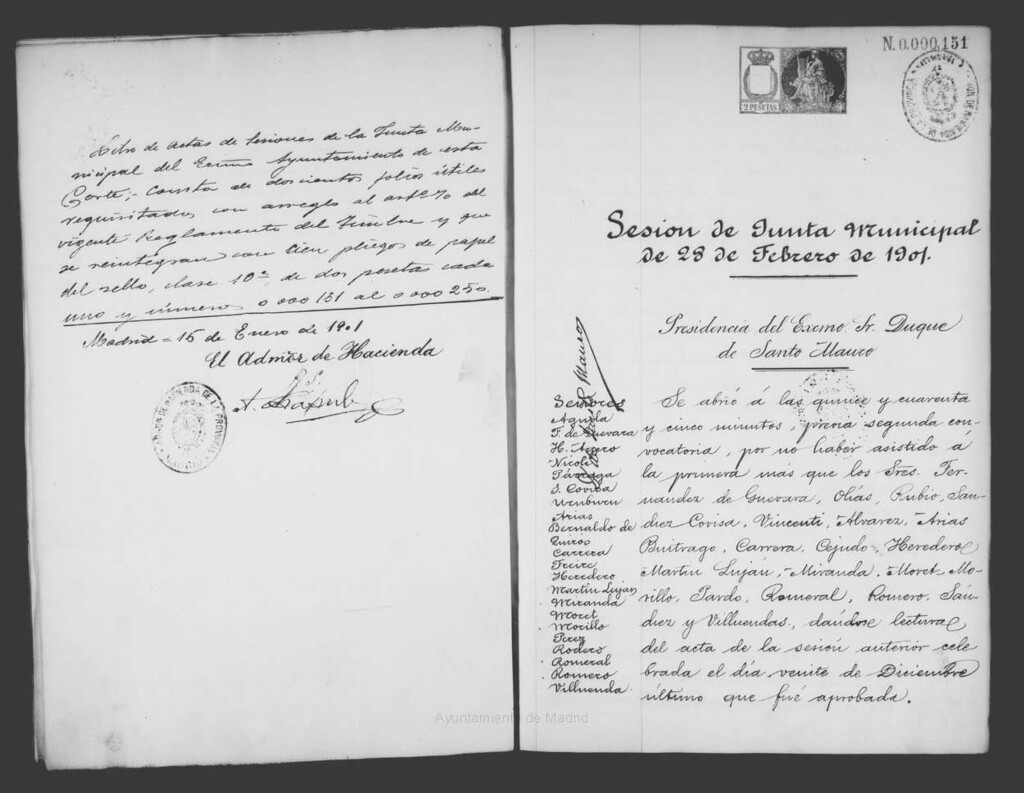 Libro de actas de sesiones de la Junta Mu-
nicipal del Excmo Ayuntamiento de esta
Corte; consta de doscientos folios útiles
requisitados con arreglo al art
vigente Reglamento del Timbre y que
se reintegran con cien pliegos de papel
del sello, clase 10ª, de dos pesetas cada
uno y números 0000151 al 0000250.
Madrid = 15 de Enero de 1901
El Admor de Hacienda
P.S.
A.
N. 0.000,151
2 PESETAS
Sesion de Junta Municipal
de 28 de Febrero de 1901.
Presidencia del Excmo. Sr. Duque
de Santo Mauro
Señores
Aguela
F. de Guevara
H. Agero
Nicoli
Párraga
S. Covisa
Arias
Bernaldo de
Quiros
Carrera
Freire
Heredero
Martin Luján
Miranda
Moret
Morillo
Perez
Rodero
Romeral
Romero
Villuenda
Se abrió á las quince y cuarenta
y cinco minutos, previa segunda con-
vocatoria, por no haber asistido á
la primera más que los Sres. Fer-
nandez de Guevara, Olías, Rubio, San-
chez Covisa, Vincenti, Alvarez, Arias
Buitrago, Carrera, Cejudo, Heredero
Martin Luján, Miranda, Moret, Mo-
rillo, Pardo, Romeral, Romero, Sán-
chez y Villuendas, dándose lectura
del acta de la sesión anterior cele
brada el día veinte de Diciembre
último que fué aprobada.
Ayuntamiento de Madrid